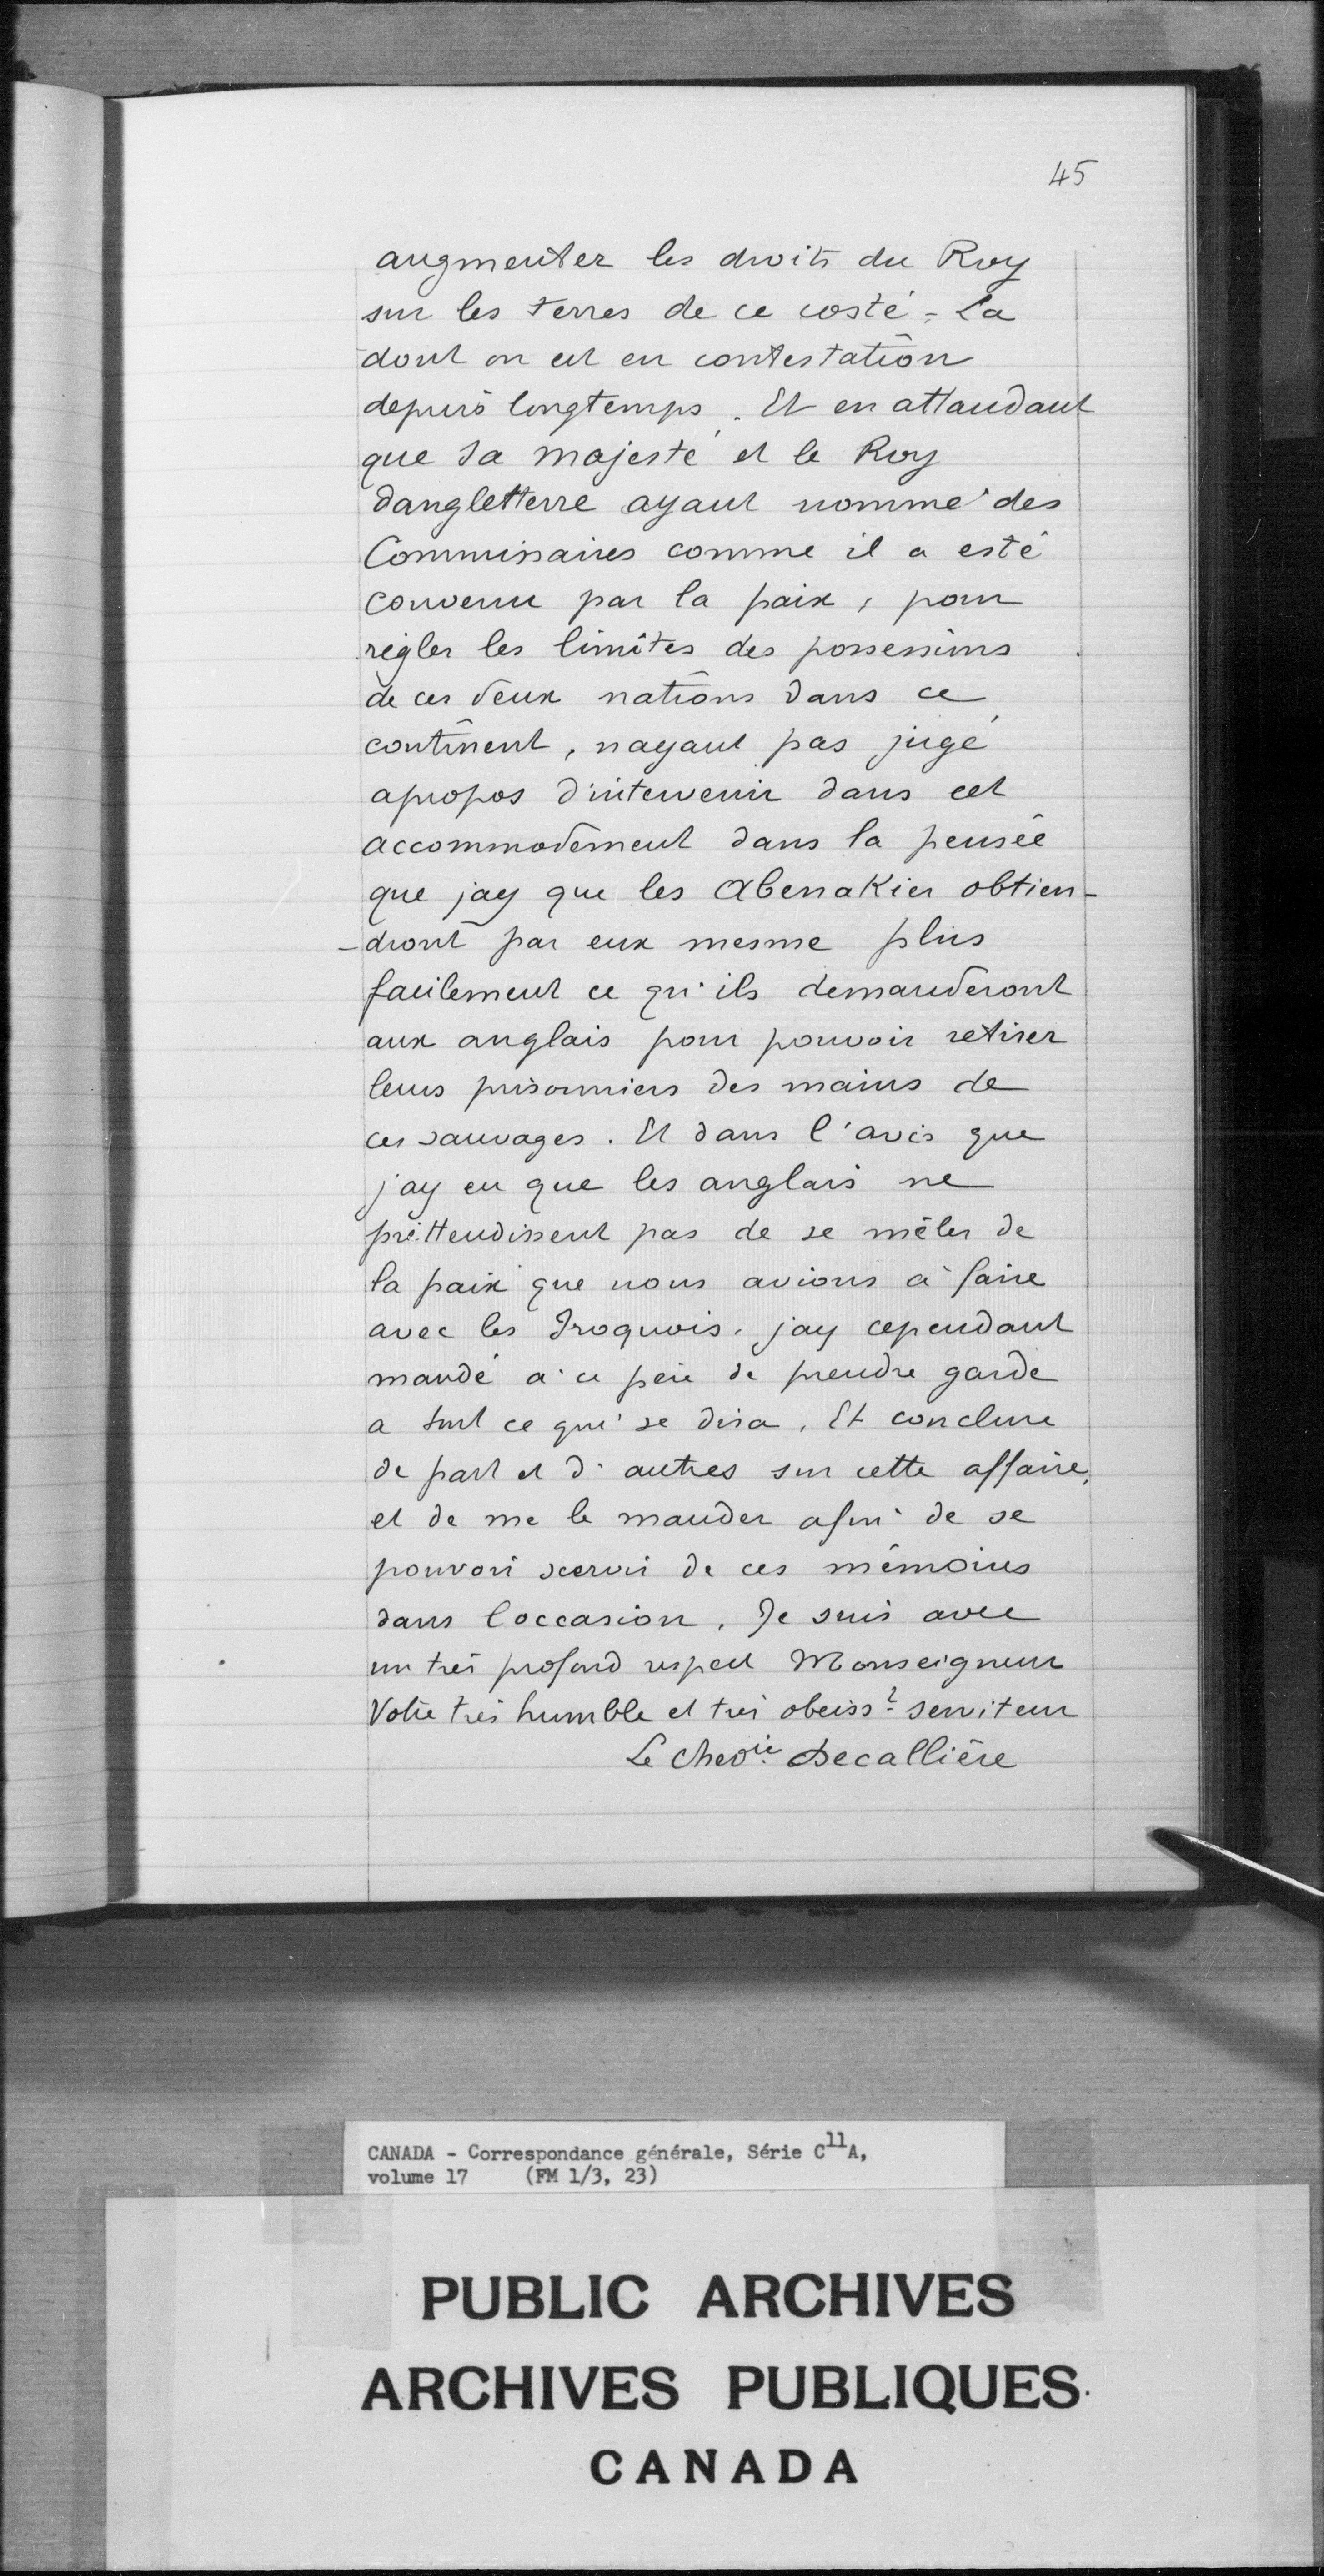 45
augmenter les droits du Roy
sur les terres de ce costé-La
dont on est en contestation
depuis longtemps. Et en attandant
que Sa majesté et le Roy
dangletterre ayant nommé des
Commissaires comme il a esté
convenu par la paix, pour
regler les limites des possessions
de ces deux nations dans ce
continent, nayant pas jugé
apropos d'intervenir dans cet
accommodement dans la pensée
que jay que les Abenakies obtien-
-dront par eux mesme plus
facilement ce qu'ils demanderont
aux anglais pour pouvoir retirer
leurs prisonniers des mains de
ces sauvages. Et dans l'avis que
jay eu que les anglais ne
préttendissent pas de se mêler de
la paix que nous avions à faire
avec les Iroquois. jay cependant
mandé a ce père de prendre garde
a tout ce qui se dira. Et conclure
de part et d'autres sur cette affaire,
et de me le mander afin de se
pouvoir scervir de ces mémoires
dans loccasion. Je suis avec
un très profond respect Monseigneur
Votre très humble et très obeisst serviteur
Le chevie Decallière
CANADA - Correspondance générale, Série C11A,
volume 17 (FM 1/3, 23)
PUBLIC ARCHIVES
ARCHIVES PUBLIQUES
CANADA